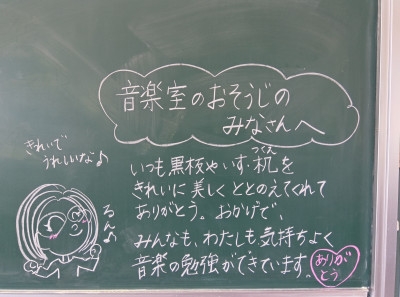 音楽室のおそうじの
みなさんへ
きれいで
うれしいな♪
るん♪
いつも黒板やいす・机を
つくえ
きれいに美しくととのえてくれて
ありがとう。おかげで、
みんなも、わたしも気持ちよく
音楽の勉強ができています。
ありが
とう